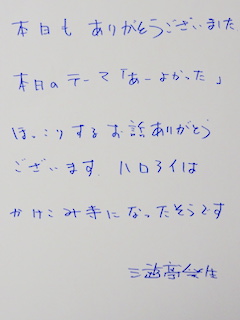 本日も ありがとうございました
本日のテーマ「あーよかった」
ほっこりするお話ありがとう
ございます ハロワイは
かけこみ寺になったそうです